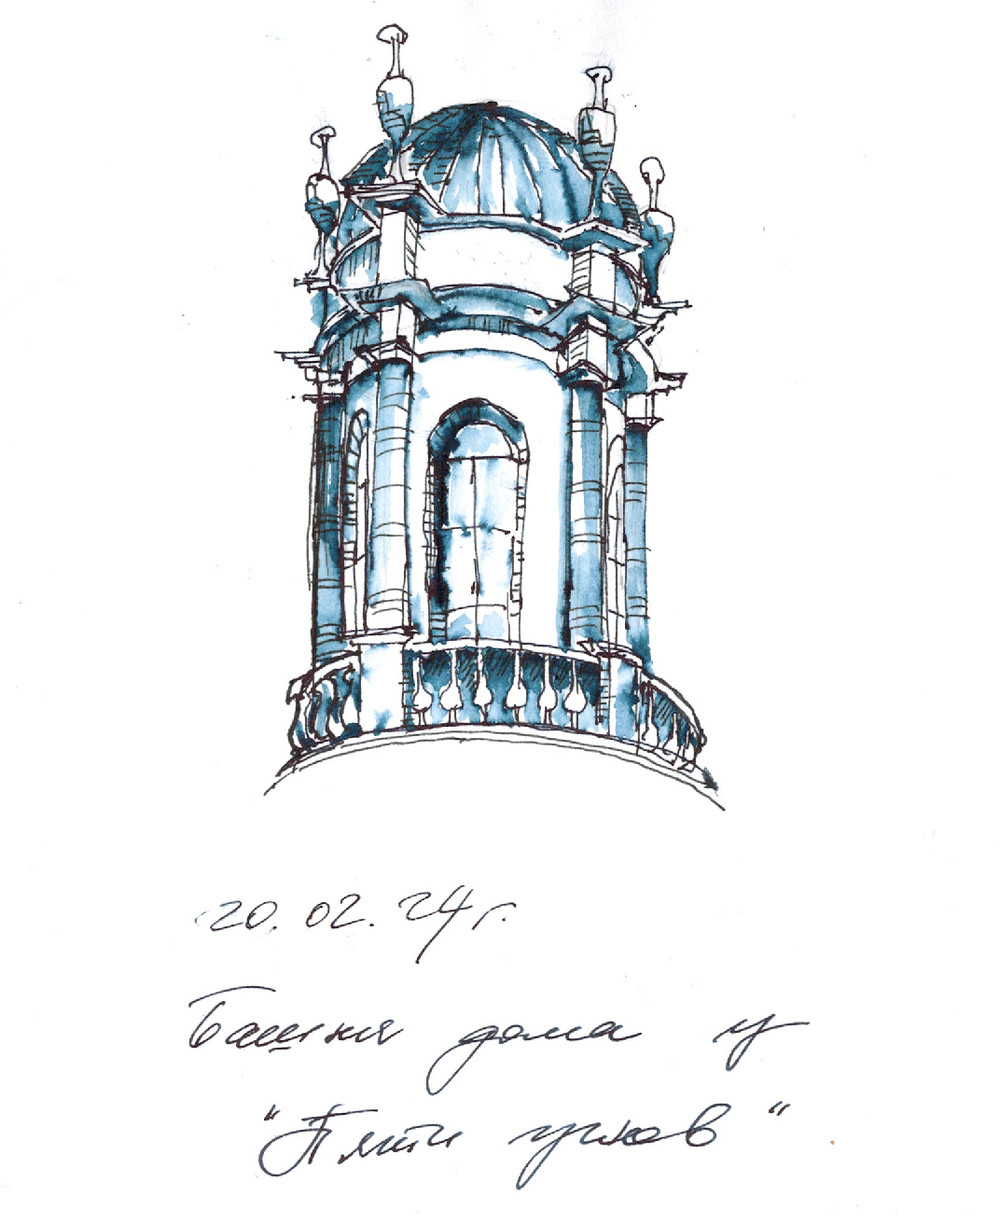 20.02.24г.
Башня дома у
"Пяти углов"